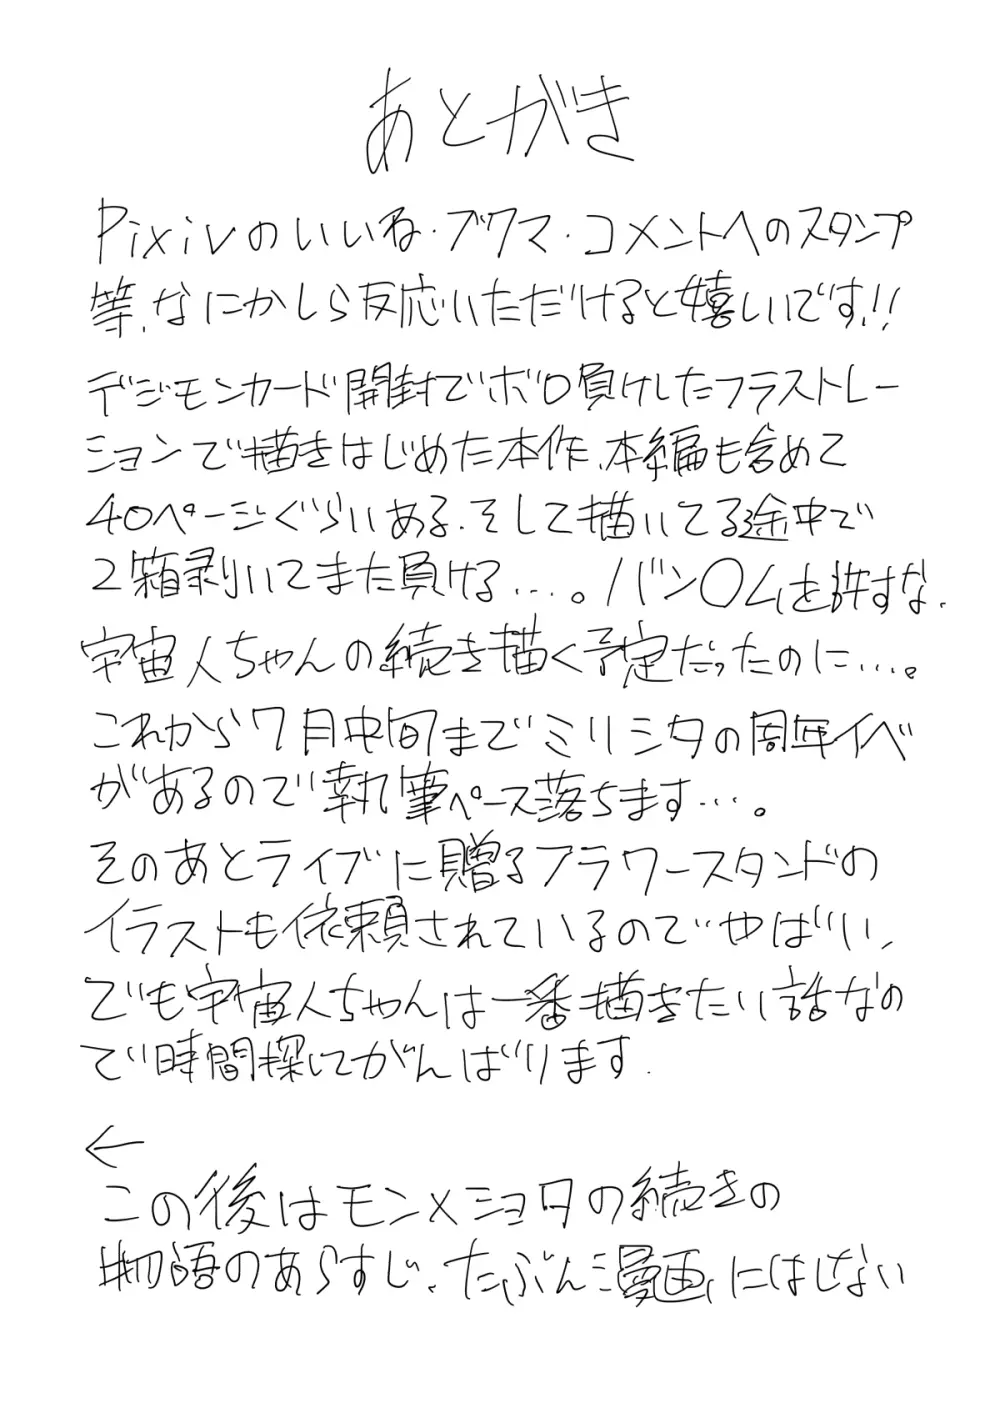 あとがき
Pixivのいいね・ブクマ・コメントへのスタンプ
等、なにかしら反応いただけると嬉しいです!!
デジモンカード開封でボロ負けしたフラストレー
ションで描きはじめた本作、本編も含めて
40ページぐらいある、そして描いてる途中で
2箱剥いてまた負ける…。バン〇ムを許すな、
宇宙人ちゃんの続き描く予定だったのに…。
これから7月中旬までミリシタの周年イベ
があるので執筆ペース落ちます…。
そのあとライブに贈るフラワースタンドの
イラストも依頼されているのでやばい、
でも宇宙人ちゃんは一番描きたい話なの
で時間探してがんばります.
←
この後はモン×ショタの続きの
物語のあらすじ、たぶん漫画にはしない